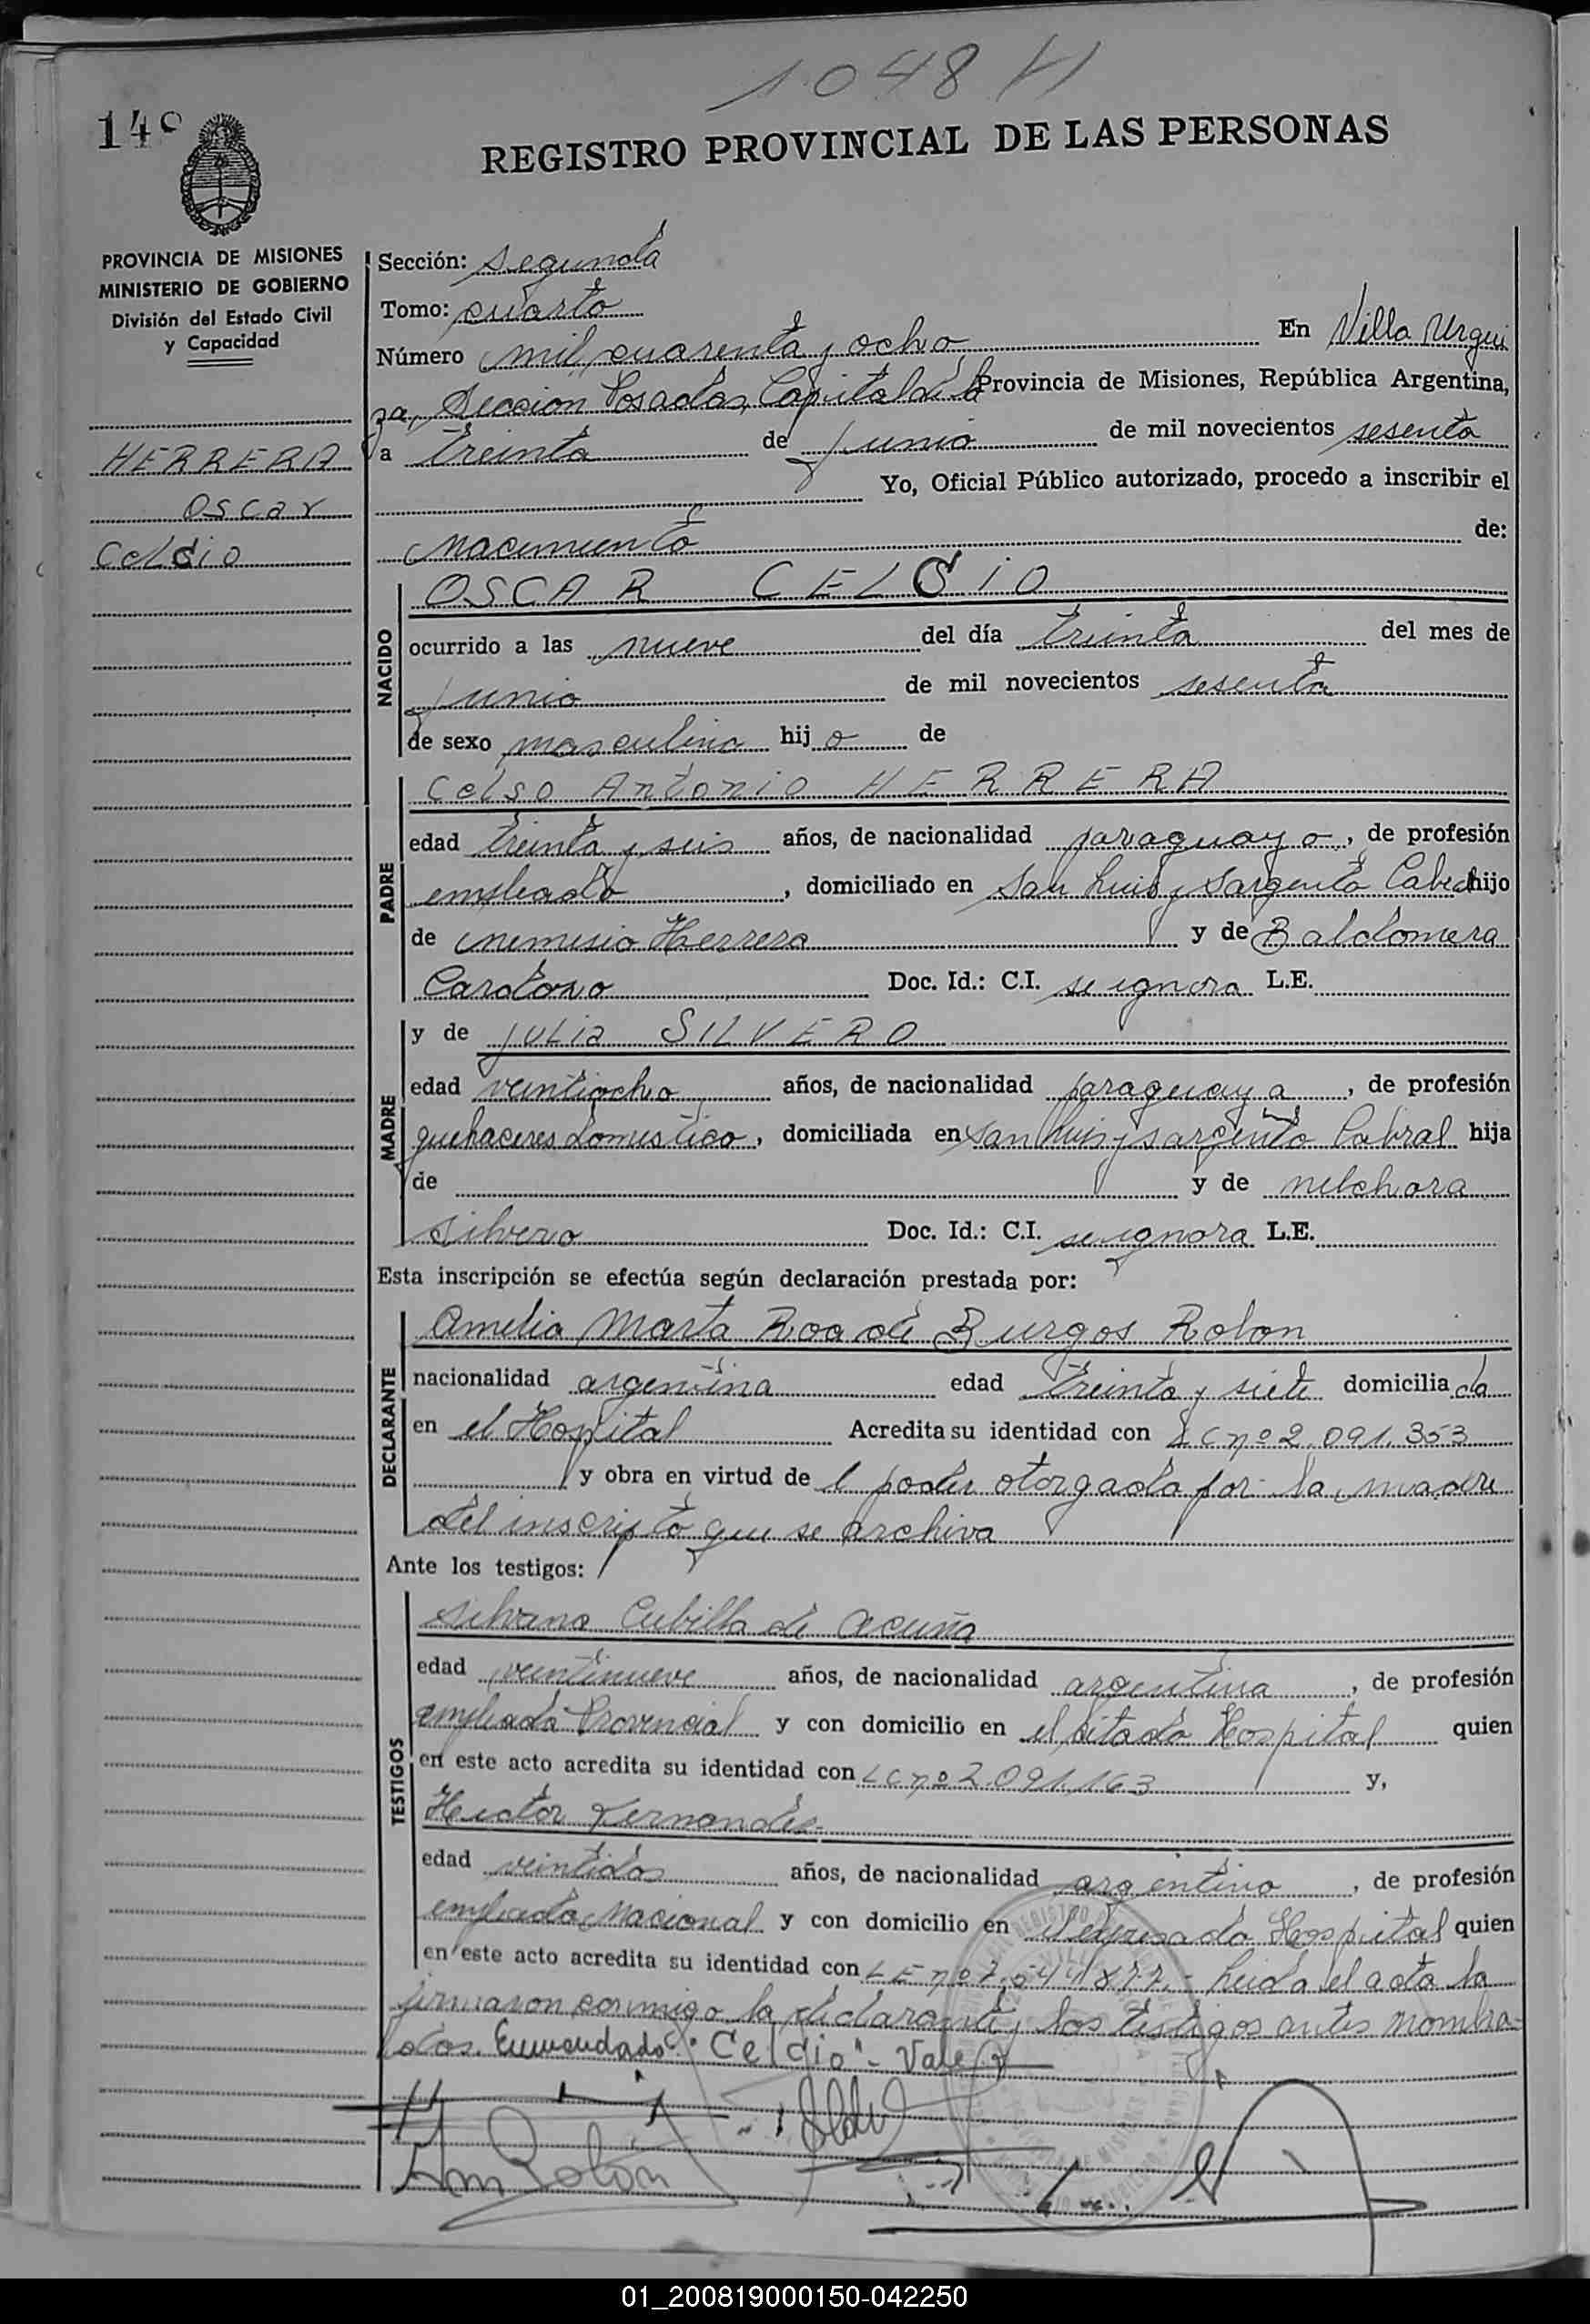 1048 H
149
REGISTRO PROVINCIAL DE LAS PERSONAS
PROVINCIA DE MISIONES
MINISTERIO DE GOBIERNO
División del Estado Civil
y Capacidad
HERRERA
Oscar
Celcio
Sección: segunda
Tomo: cuarto
Número mil cuarenta y ocho En Villa Urqui
za, Sección Posadas, Capital de la Provincia de Misiones, República Argentina,
a treinta de junio de mil novecientos sesenta
Yo, Oficial Público autorizado, procedo a inscribir el
nacimiento de:
NACIDO
OSCAR CELCIO
ocurrido a las nueve del día treinta del mes de
junio de mil novecientos sesenta
de sexo masculino hijo de
PADRE
Celso Antonio HERRERA
edad treinta y seis años, de nacionalidad paraguayo, de profesión
empleado, domiciliado en San Luis y Sargento hijo
de nemesio Herrera y de Baldomera
Cardozo Doc. Id.: C.I. se ignora L.E.
MADRE
y de Julia SILVERO
edad veintiocho años, de nacionalidad paraguaya, de profesión
quehaceres domestico, domiciliada en San Luis y sargento Cabral hija
de y de melchora
Silvero Doc. Id.: C.I. se ignora L.E.
Esta inscripción se efectúa según declaración prestada por:
DECLARANTE
Amelia Marta Roa de Burgos Rolon
nacionalidad argentina edad treinta y siete domiciliada
en el Hospital Acredita su identidad con L C nº 2.091.353
y obra en virtud de l poder otorgado por la madre
del inscripto que se archiva
Ante los testigos:
TESTIGOS
Silvana Cubilla de Acuña
edad veintinueve años, de nacionalidad argentina, de profesión
empleada Provincial y con domicilio en el citado Hospital quien
en este acto acredita su identidad con L C nº 2.091.163 y,
Hector Fernandez
edad veintidos años, de nacionalidad argentino, de profesión
empleado Nacional y con domicilio en el expresado Hospital quien
en este acto acredita su identidad con L E nº 7.544.877.- Leida el acta la
firmaron conmigo la declarante y los testigos antes nombra-
dos. Enmendado: "Celcio" - Vale
01_200819000150-042250